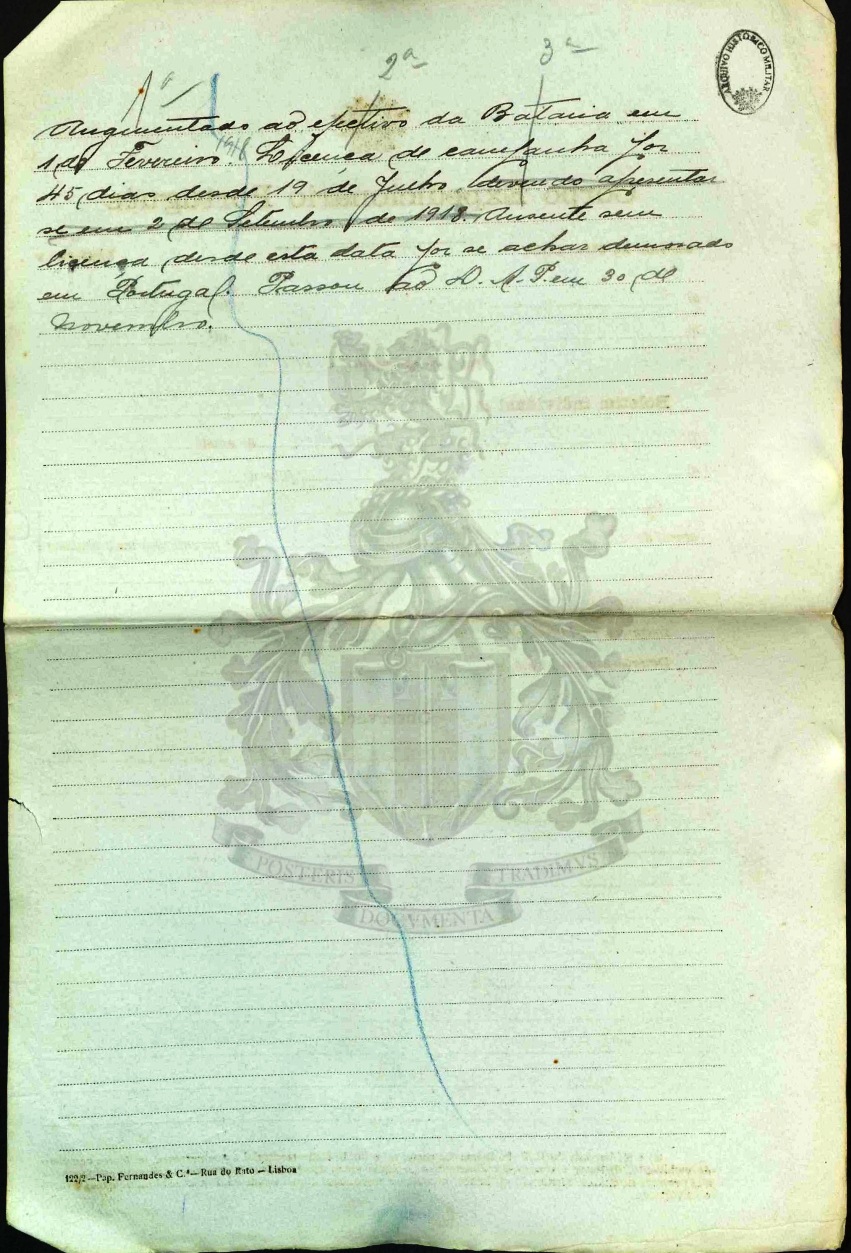 1ª 2ª 3ª
ARQUIVO HISTÓRICO MILITAR
Augmentado ao efectivo da Bataria em
1 de Fevereiro. 1918 Licença de campanha por
45 dias desde 19 de Junho, devendo apresentar
se em 2 de Setembro de 1918. Ausente sem
licença desde esta data por se achar demorado
em Portugal. Passou ao D. A. P. em 30 de
Novembro.
Boletim individual
POSTERIS TRADIMVS
DOCVMENTA
122/2—Pap. Fernandes & C.ª—Rua do Rato — Lisboa